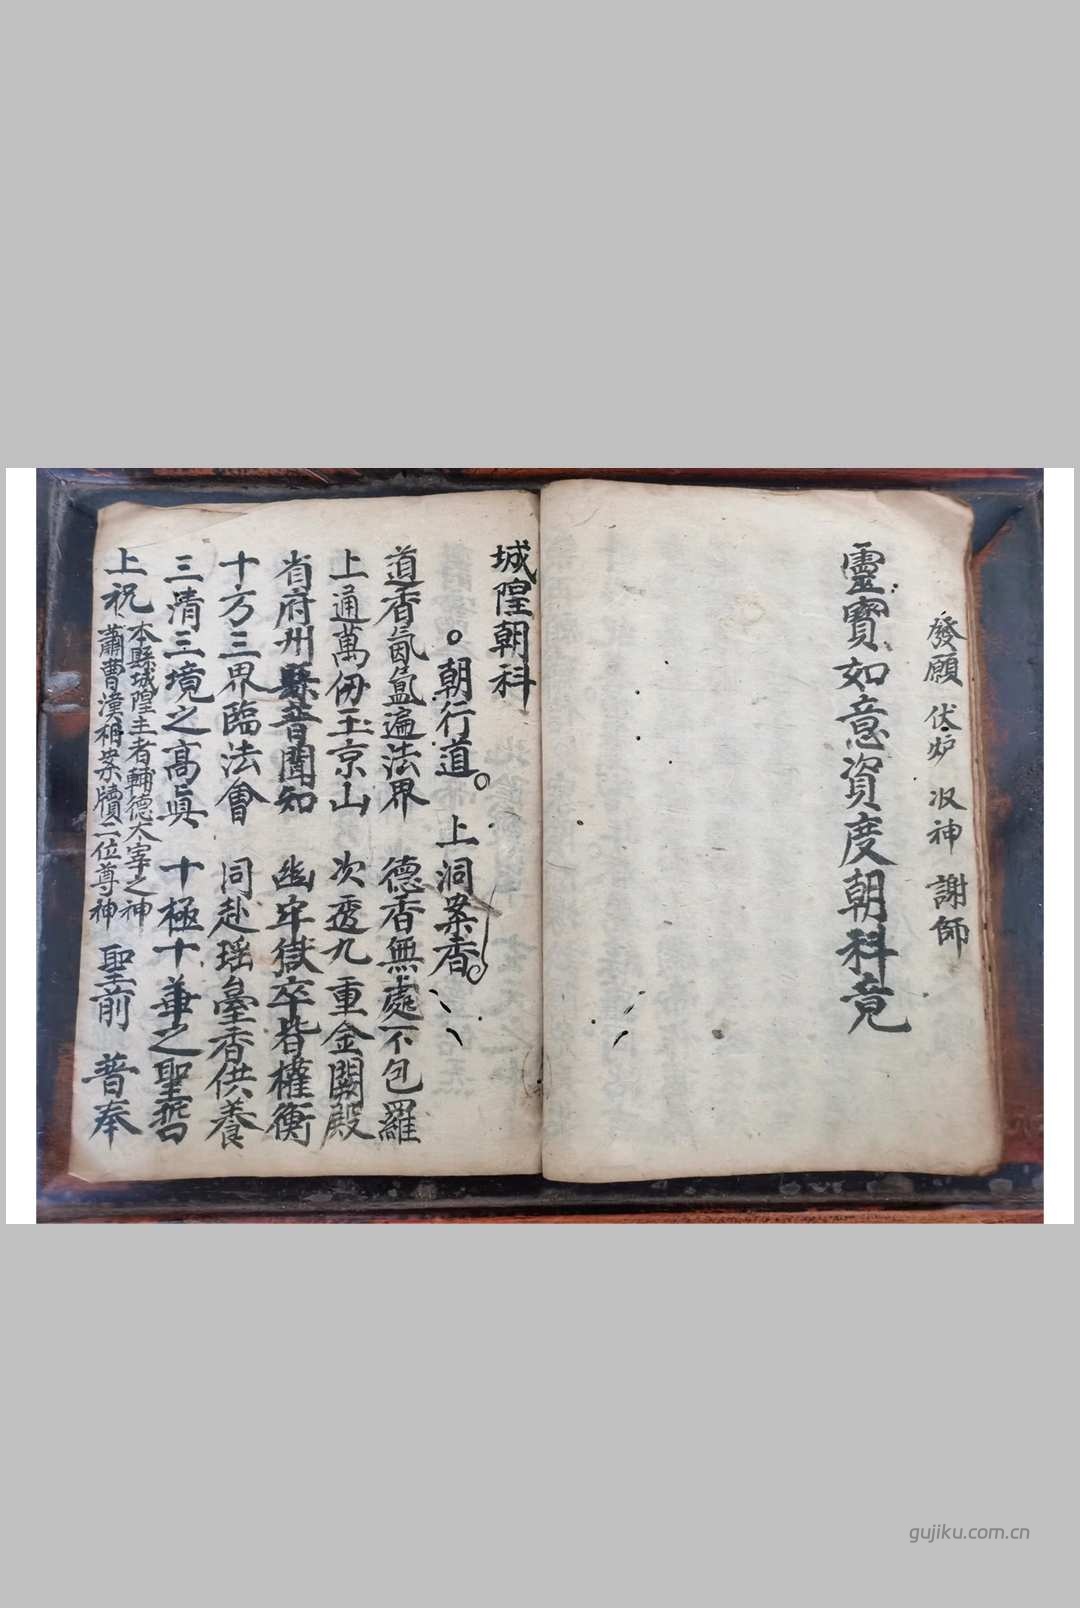 發願 伏炉 収神 謝師
靈寶如意資度朝科竟
城隍朝科
朝行道 上洞案香
道香氤氳遍法界 德香無處不包羅
上通萬仞玉京山 次透九重金闕殿
省府州縣普聞知 幽牢獄卒皆權衡
十方三界臨法會 同赴瑶臺香供養
三清三境之高真 十極十華之聖哲
上祝 本縣城隍主者輔德大宰之神
蕭曹漢相案牘二位尊神 聖前 普奉
gujiku.com.cn